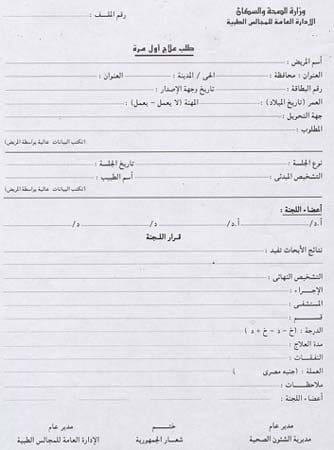 وزارة الصحة والسكان
الادارة العامة للمجالس الطبية
رقم الملف :
طلب علاج اول مرة
أسم المريض :
العنوان : محافظة : الحى / المدينة : العنوان :
رقم البطاقة : تاريخ وجهة الإصدار :
العمر (تاريخ الميلاد) : المهنة (لا يعمل – يعمل) :
جهة التحويل :
المطلوب :
(تكتب البيانات عالية بواسطة المريض)
نوع الجلسة : تاريخ الجلسة :
التشخيص المبدئى : أسم الطبيب :
(تكتب البيانات عالية بواسطة المريض)
أعضاء اللجنة :
أ.د/ أ.د/ د/ د/
قرار اللجنة
نتائج الأبحاث تفيد :
التشخيص النهائى :
الإجراء :
المستشفى :
قسم :
الدرجة : (خ – د – خ + د)
مدة العلاج :
النفقات :
العملة : (جنيه مصرى )
ملاحظات :
أعضاء اللجنة :
مدير عام ختم مدير عام
مديرية الشئون الصحية شعار الجمهورية الإدارة العامة للمجالس الطبية